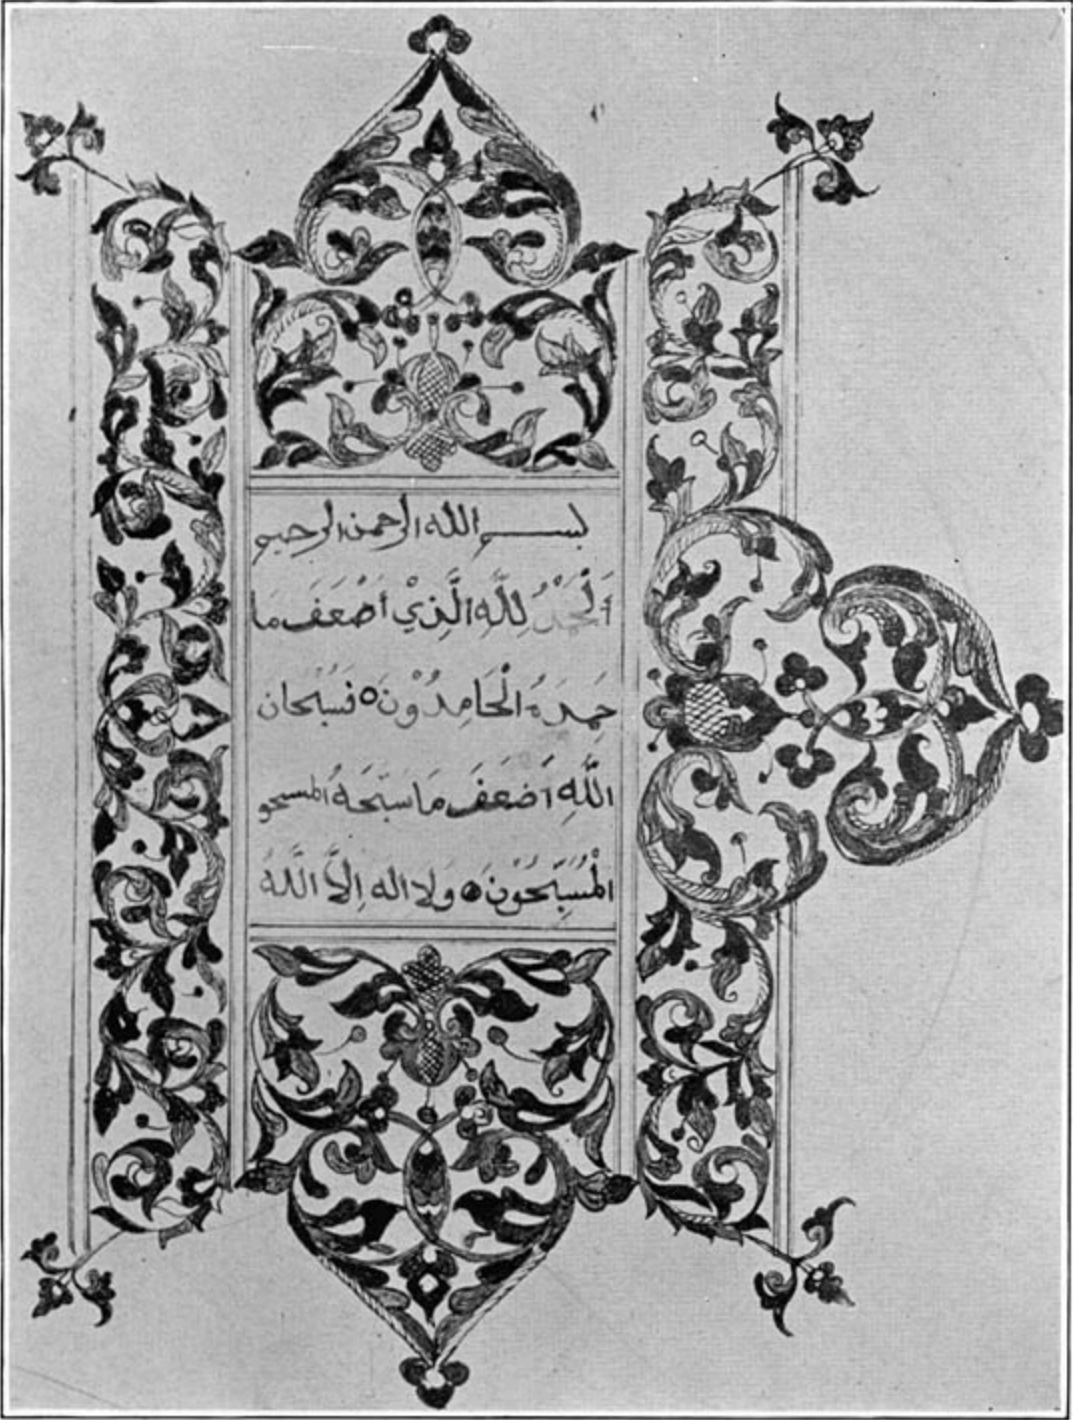 بسم الله الرحمن الرحيم
اَلْحَمْدُ لِلَّهِ الَّذِيْ اَضْعَفَ مَا
حَمِدَهُ الْحَامِدُوْنَ ە فَسُبْحَان
اللَّهِ اَضْعَفَ مَا سَبَّحَهُ المسبحو
الْمُسَبِّحُوْنَ ە وَلا اله اِلاَّ اللَّهُ